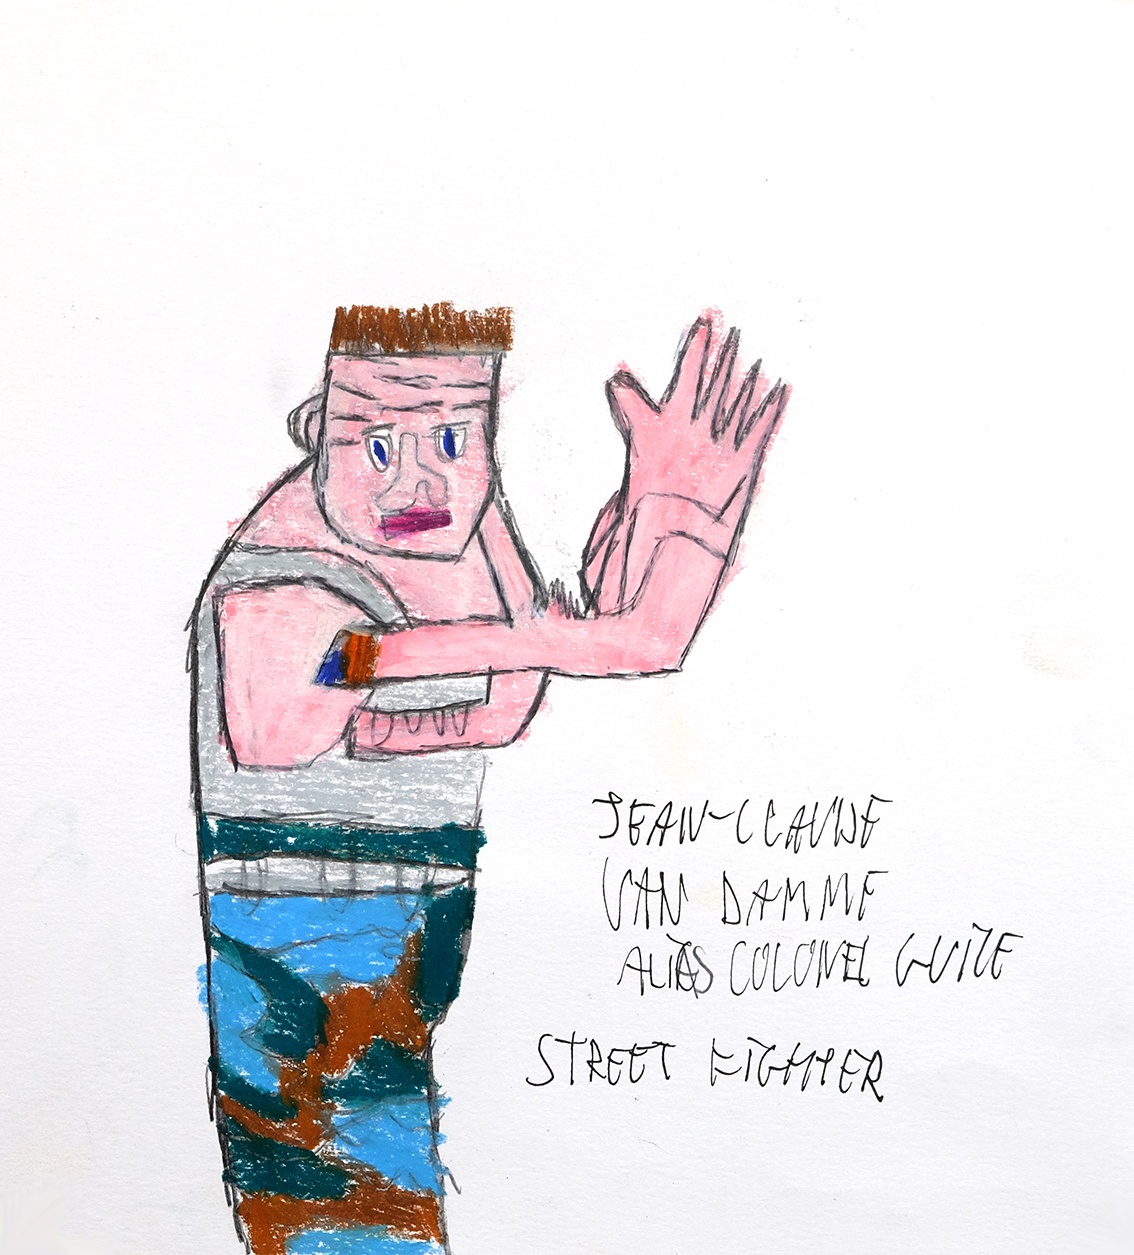 JEAN-CLAUDE
VAN DAMME
ALIAS COLONEL GUILE
STREET FIGHTER